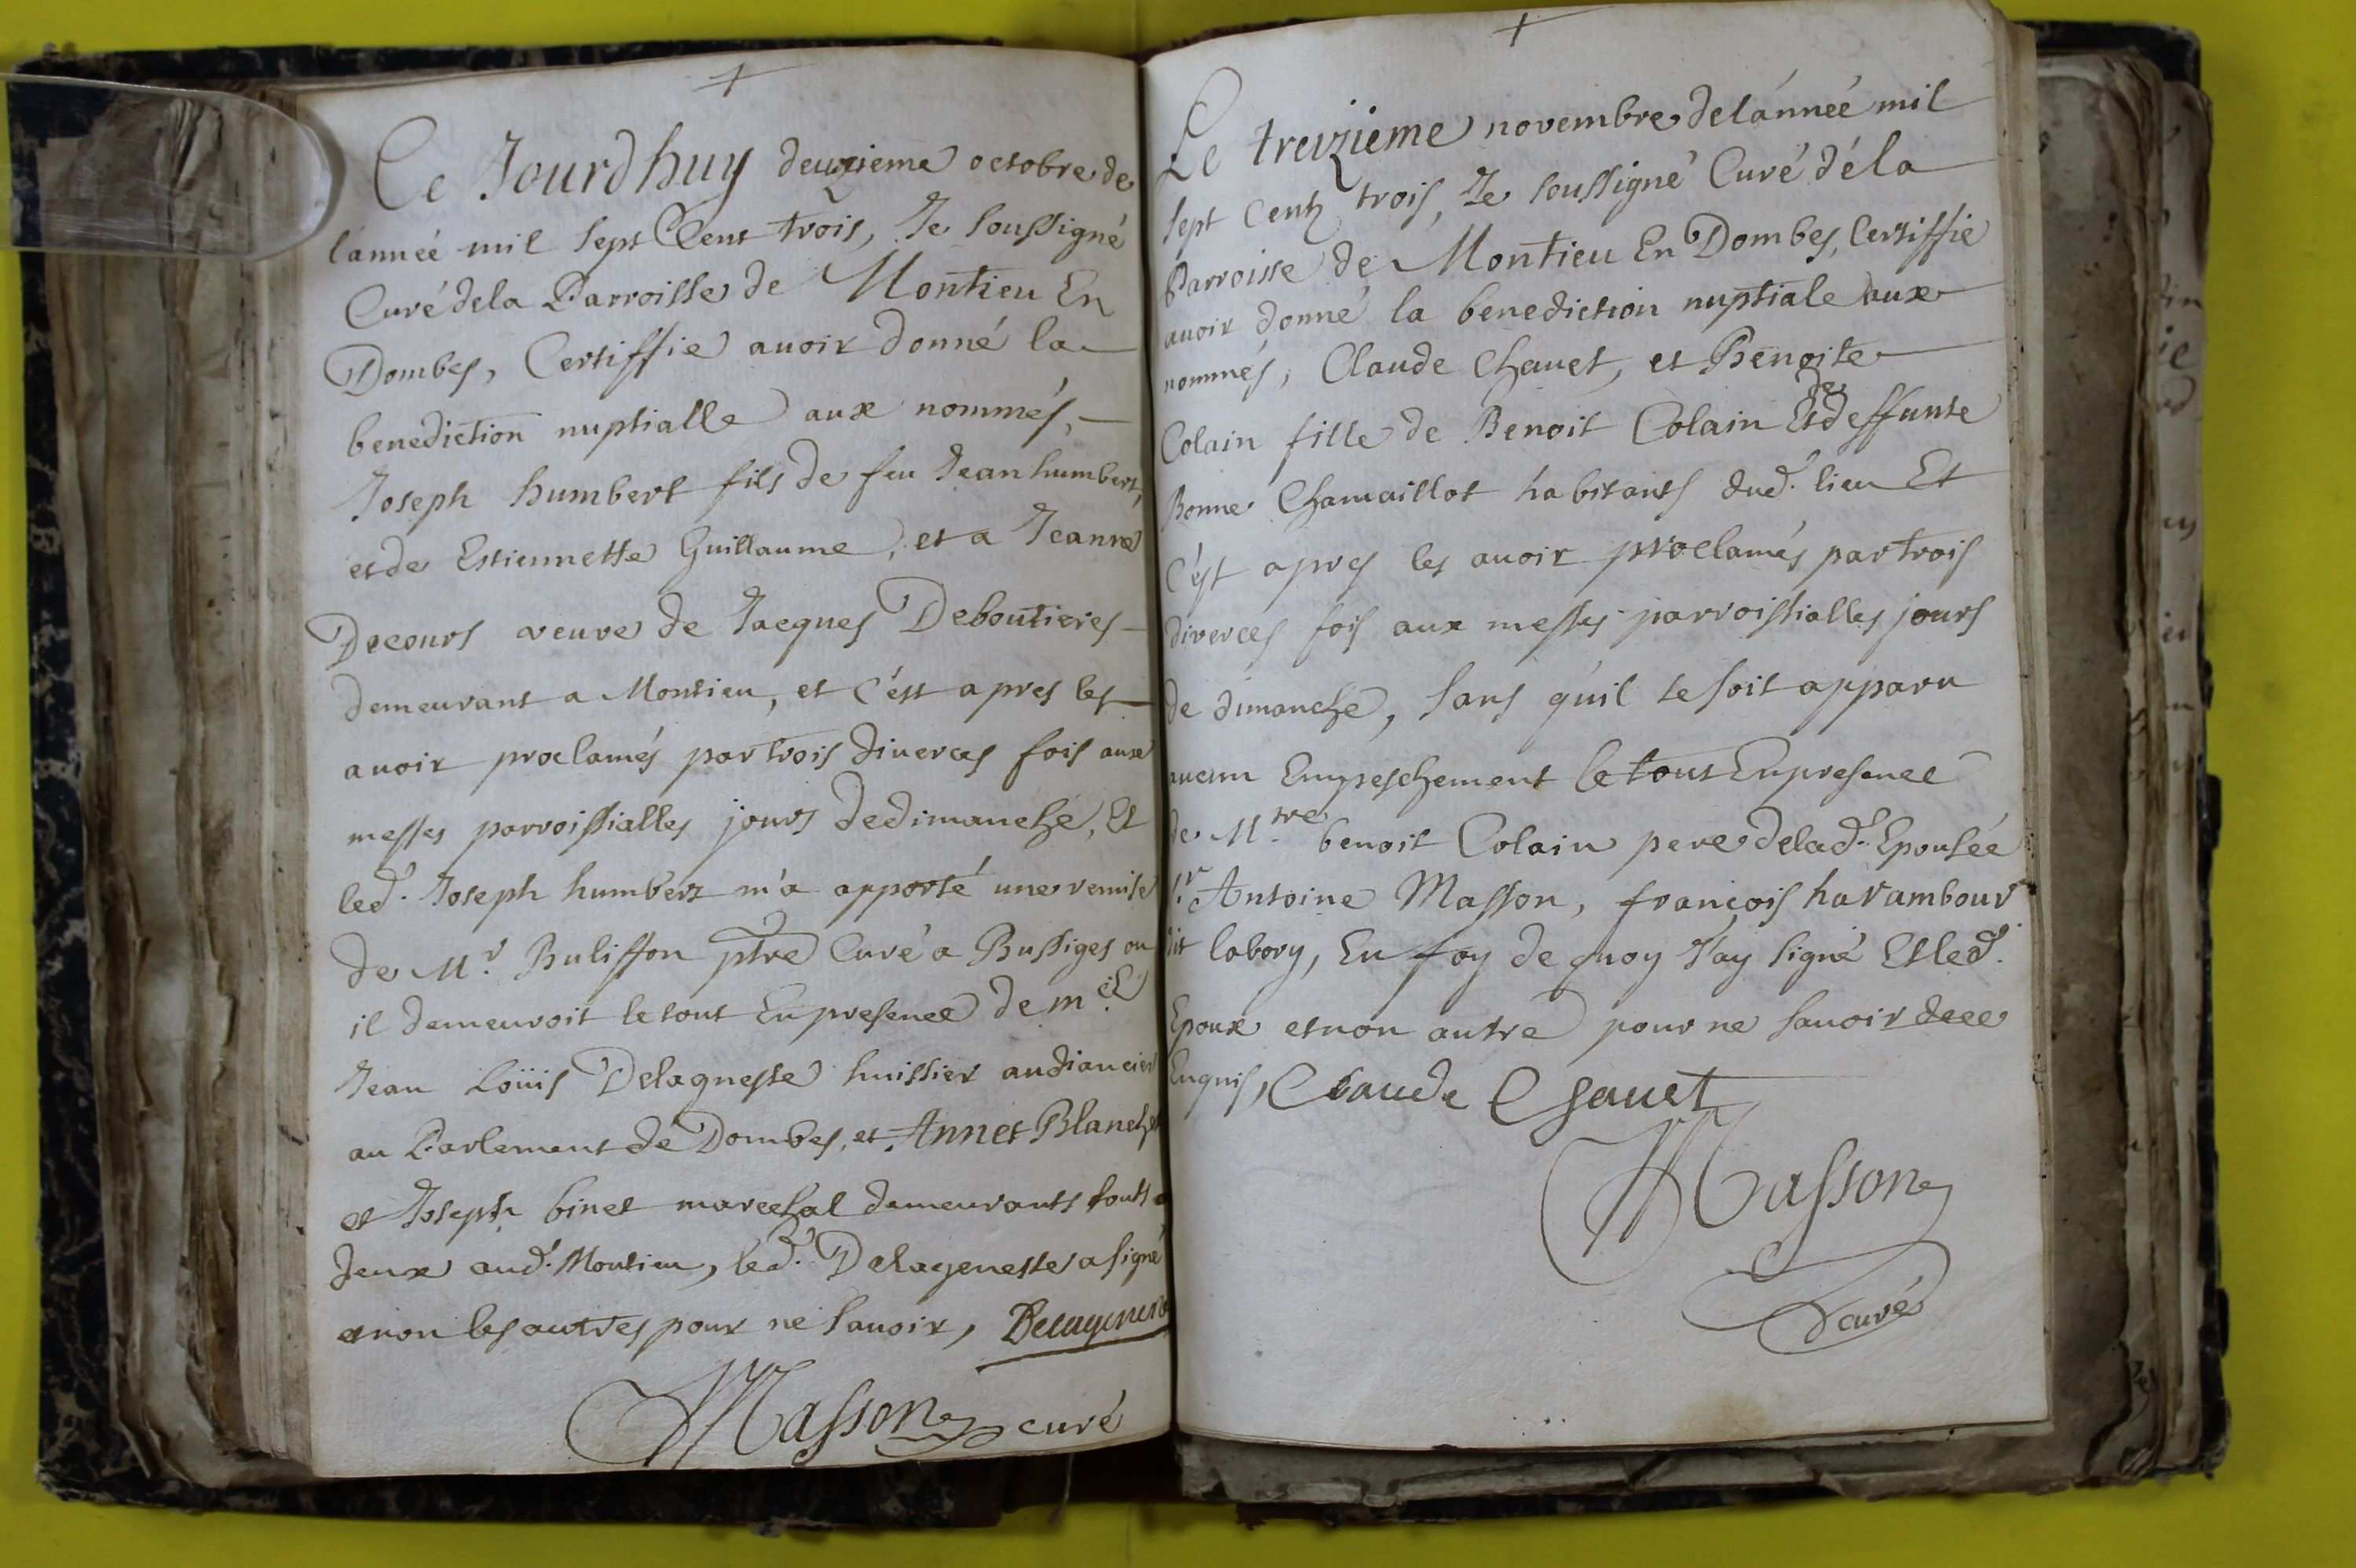 Ce Jourdhuy deuxieme octobre de
lánneé mil sept Cent trois, Je soussigné
Curé dela Parroisse de Montieu En
Dombes, Certiffie avoir donné la
benediction nuptialle aux nommés,
Joseph humbert fils de feu Jean humbert,
et de Estiennette Guillaume, et a Jeanne
Decours veuve de Jacques Deboutieres
demeurant a Montieu, et c'ést apres les
avoir proclamés par trois diverces fois aux
messes parroissialles jours de dimanche, Et
led. Joseph humbert m'a apporté une remise
de Mr. Bulisson ptre Curé a Bussiges ou
il demeuroit le tout En presence de
Jean Loüis Delagneste huissier audiancier
au Parlement de Dombes, et Annet Blanchet
et Joseph binet marechal demeurants touts
deux aud. Montieu, led. Delageneste a signé
et non les autres pour ne savoir,
Masson curé
Le treizieme novembre de lánneé mil
sept Centz trois, Je soussigné Curé dé la
Parroisse de Montieu En Dombes, Certiffie
avoir donné la benediction nuptiale aux
nommés, Claude Chavet, et Benoite
Colain fille de Benoit Colain Et de deffunte
Bonne Chamaillot habitants dud. lieu Et
C'ést apres les avoir proclamés par trois
diverces fois aux messes parroissialles jours
de dimanche, sans q'uil se soit apparu
aucun Empeschement le tout En presence
de Mtre benoit Colain pere delad. Epousée
sr Antoine Masson, françois harambour
dit labory, En foy de quoy J'ay signé Et led.
Epoux et non autre pour ne savoir de ce
Enquis, Claude Chavet
Masson
curé